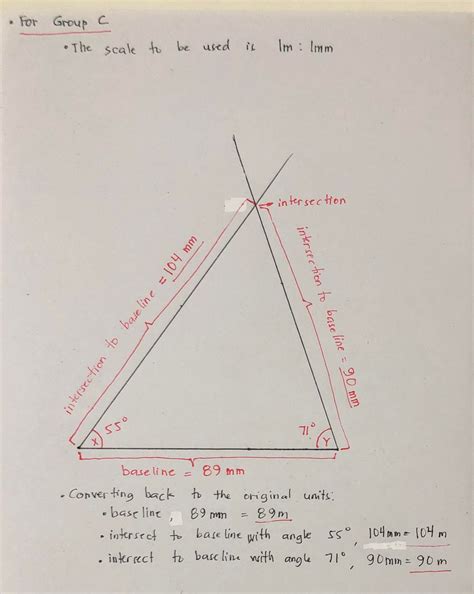 • For Group C
• The scale to be used is 1m : 1mm
intersection
intersection to baseline = 104 mm
intersection to baseline = 90 mm
55°
X
71°
Y
baseline = 89 mm
• Converting back to the original units:
• baseline, 89 mm = 89m
• intersect to baseline with angle 55°, 104mm = 104 m
• intersect to baseline with angle 71°, 90mm = 90 m